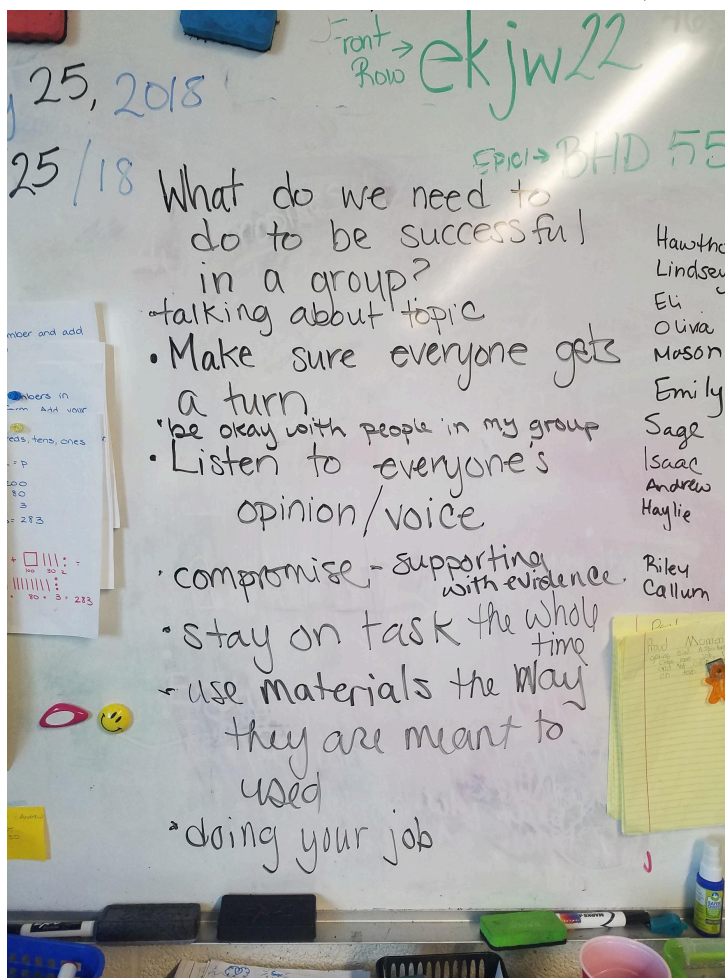 Front →
Row
ekjw22
25, 2018
Epic! → BHD 55
25/18
What do we need to
do to be successful
in a group?
• talking about topic
• Make sure everyone gets
a turn
• be okay with people in my group
• Listen to everyone's
opinion/voice
• compromise - supporting
with evidence.
• stay on task the whole
time
- use materials the way
they are meant to
used
• doing your job
Lindsey
Eli
Olivia
Mason
Emily
Sage
Isaac
Andrew
Haylie
Riley
Callum
mber and add
mbers in
Add your
eds, tens, ones
= P
80
3
= 283
100 80 2
80 + 3 = 283
Andrew